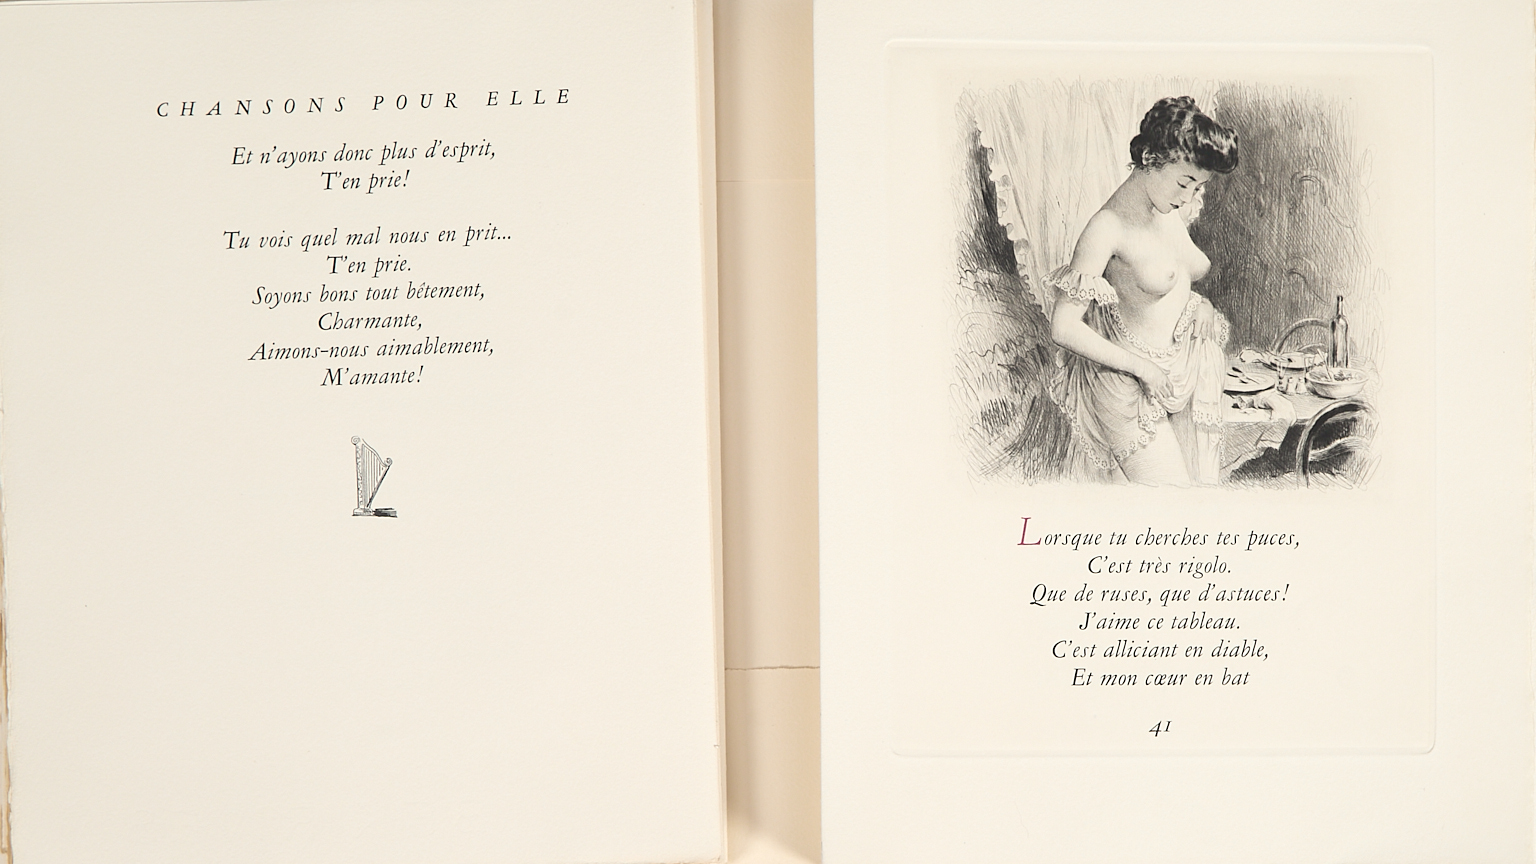 CHANSONS POUR ELLE
Et n'ayons donc plus d'esprit,
T'en prie!
Tu vois quel mal nous en prit...
T'en prie.
Soyons bons tout bêtement,
Charmante,
Aimons-nous aimablement,
M'amante!
Lorsque tu cherches tes puces,
C'est très rigolo.
Que de ruses, que d'astuces!
J'aime ce tableau.
C'est alliciant en diable,
Et mon cœur en bat
41